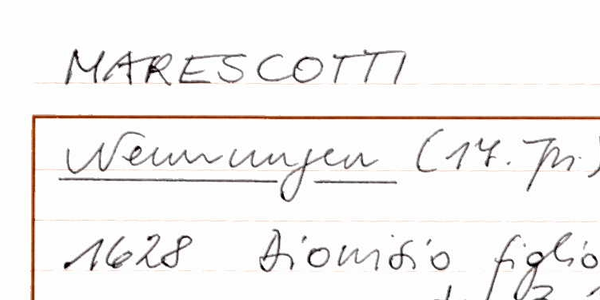 MARESCOTTI
Nennungen (17. Jh.)
1628 Dionisio figlio